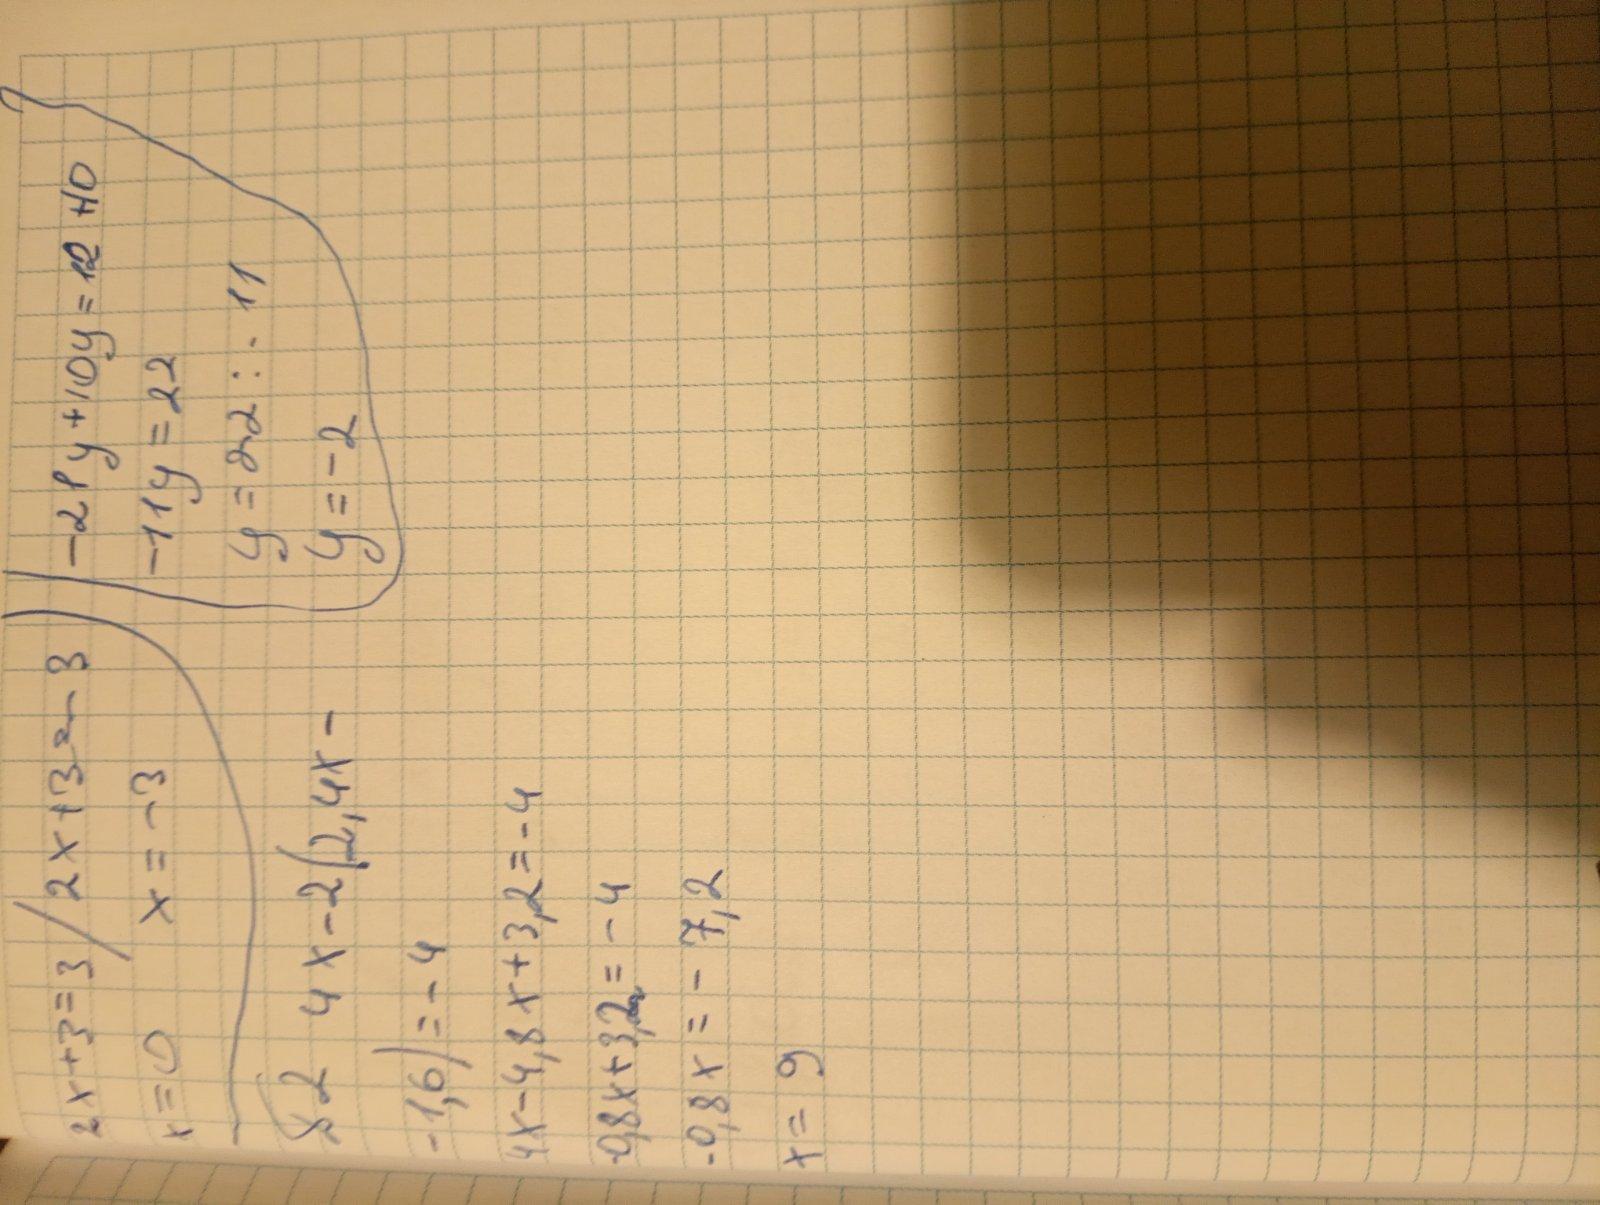 2x+3=3 / 2x+3=-3
x=0 x=-3
-21y+10y=12+10
-11y=22
y=22:-11
y=-2
№2 4x-2(2,4x-
-1,6)=-4
4x-4,8x+3,2=-4
-0,8x+3,2=-4
-0,8x=-7,2
x=9